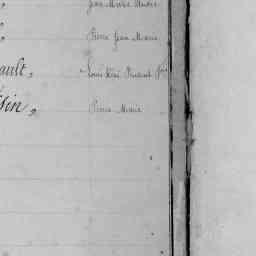 „ Jean Marie André
„ Pierre Jean Marie
ault „ Louis René Vincent fils
sin „ Pierre Marie